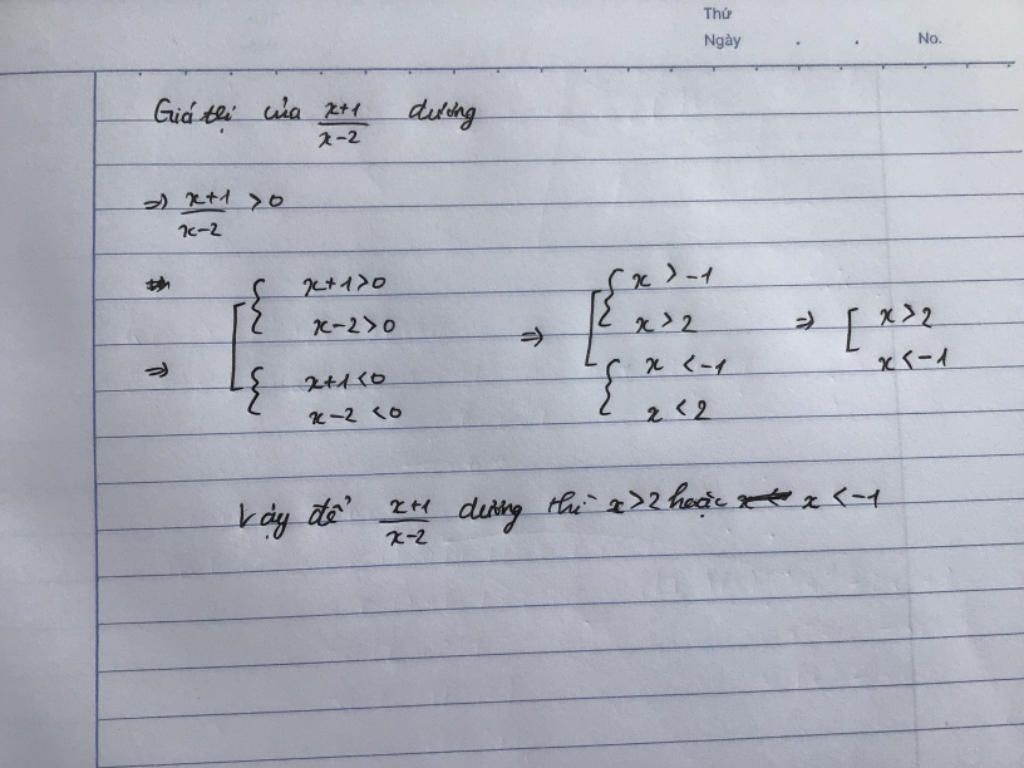 Thứ
Ngày . . No.
Giá trị của \frac{x+1}{x-2} dương
=> \frac{x+1}{x-2} > 0
=> [ { x+1>0 ; x-2>0 } ; { x+1<0 ; x-2<0 } => [ { x>-1 ; x>2 } ; { x<-1 ; x<2 } => [ x>2 ; x<-1
Vậy để \frac{x+1}{x-2} dương thì x>2 hoặc x<-1